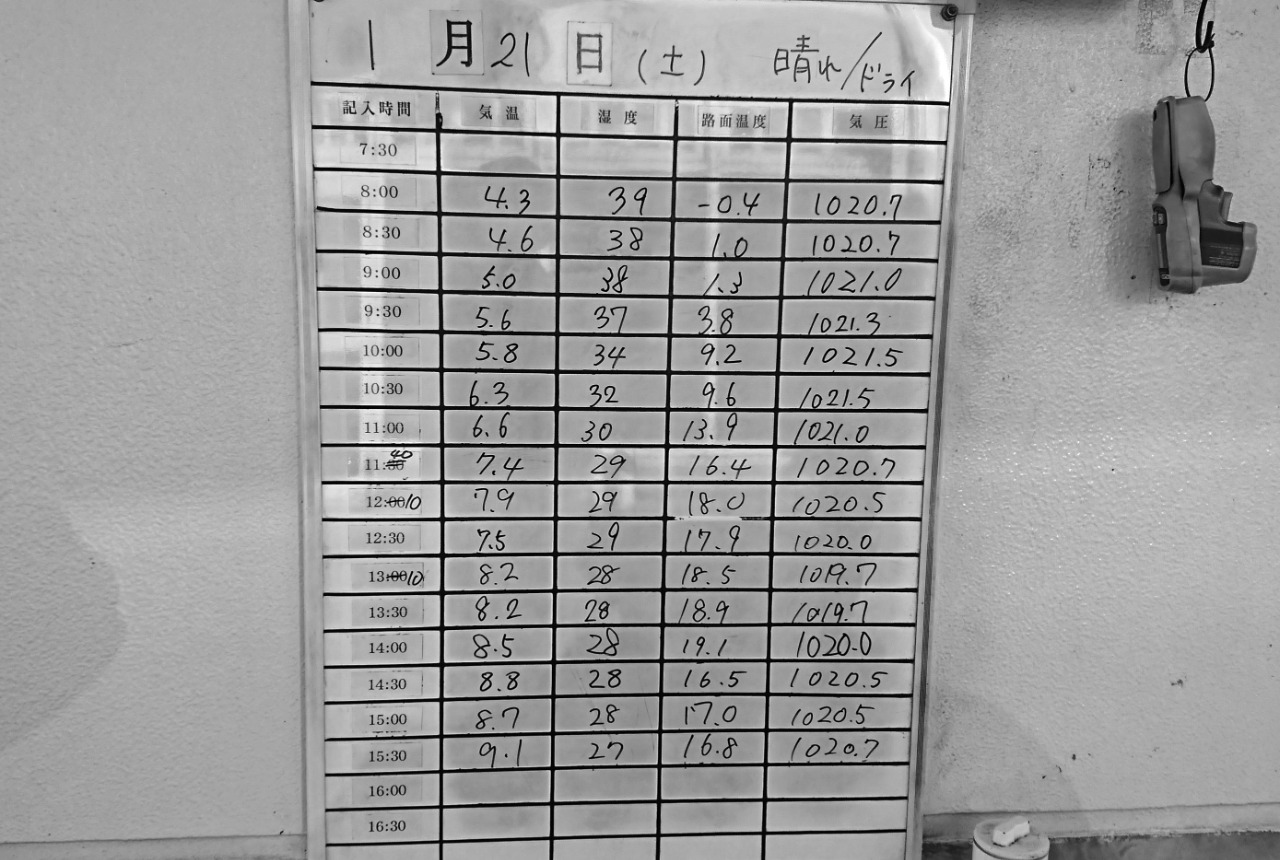 1月21日(土) 晴れ/ドライ
記入時間 気温 湿度 路面温度 気圧
7:30
8:00 4.3 39 -0.4 1020.7
8:30 4.6 38 1.0 1020.7
9:00 5.0 38 1.3 1021.0
9:30 5.6 37 3.8 1021.3
10:00 5.8 34 9.2 1021.5
10:30 6.3 32 9.6 1021.5
11:00 6.6 30 13.9 1021.0
11:40 7.4 29 16.4 1020.7
12:10 7.9 29 18.0 1020.5
12:30 7.5 29 17.9 1020.0
13:10 8.2 28 18.5 1019.7
13:30 8.2 28 18.9 1019.7
14:00 8.5 28 19.1 1020.0
14:30 8.8 28 16.5 1020.5
15:00 8.7 28 17.0 1020.5
15:30 9.1 27 16.8 1020.7
16:00
16:30